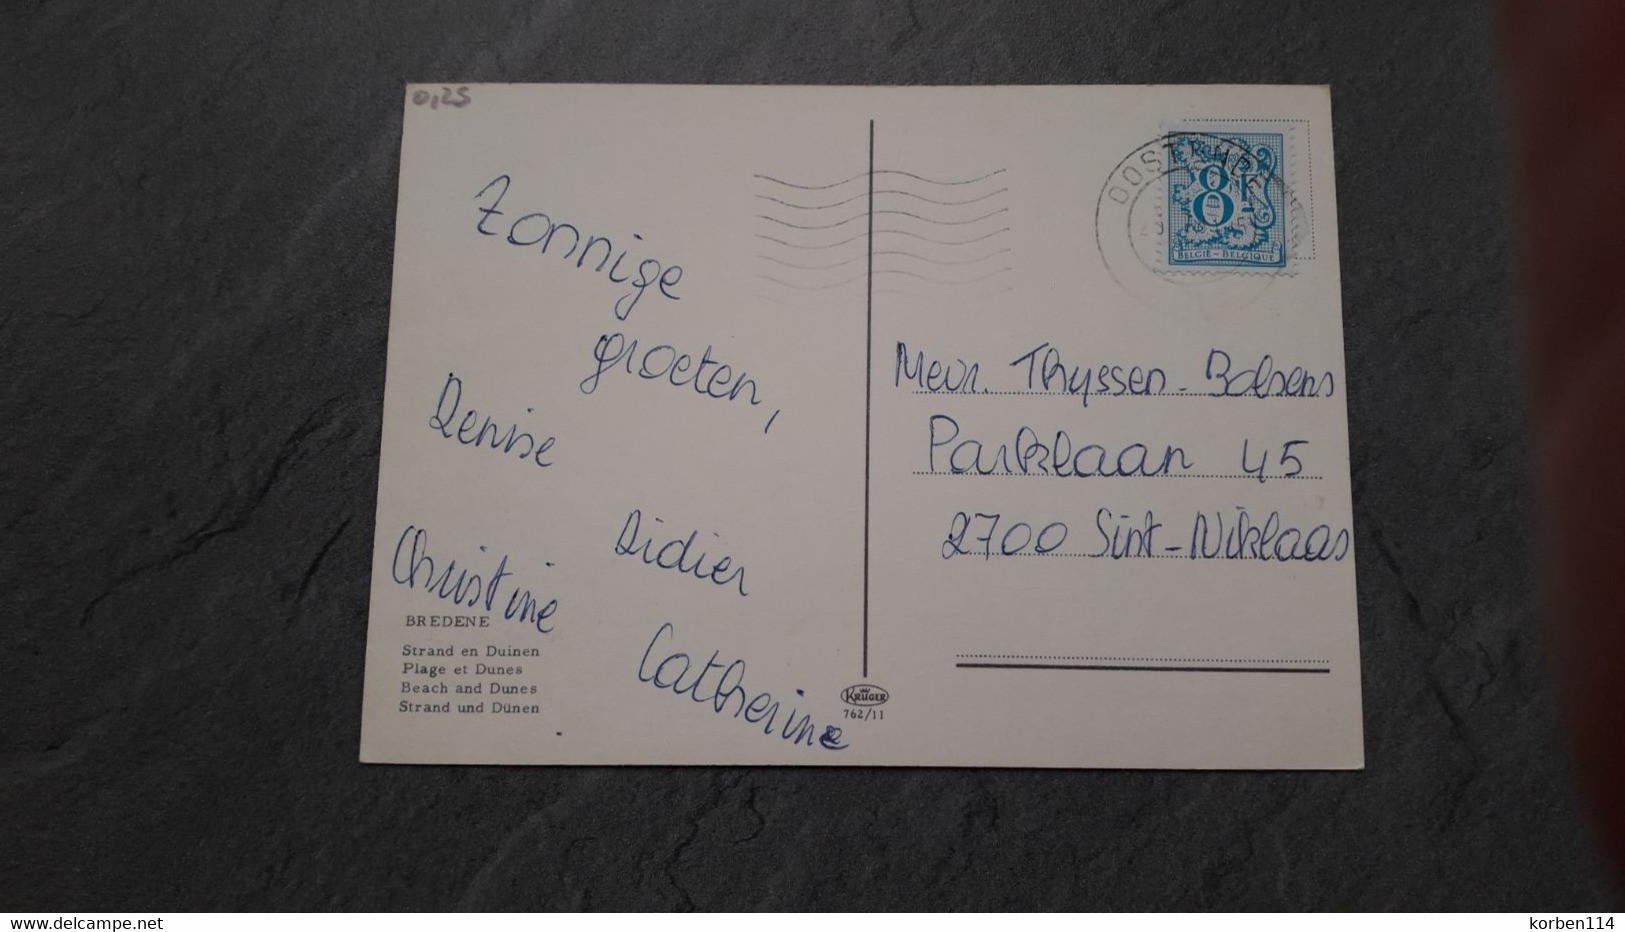 0,25
Zonnige
groeten,
Denise
Didier
Christine
Catherine
BREDENE
Strand en Duinen
Plage et Dunes
Beach and Dunes
Strand und Dünen
KRÜGER
762/11
OOSTENDE
8F
BELGIË - BELGIQUE
Mevr. Thyssen - Bolsens
Parklaan 45
2700 Sint-Niklaas
www.delcampe.net
korben114